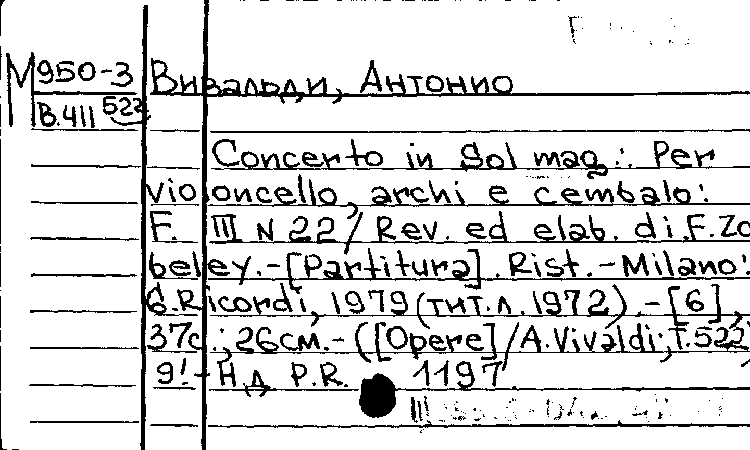 М950-3 Вивальди, Антонио
В.411 522
Concerto in Sol mag.: Per
violoncello, archi e cembalo:
F. III N 22 / Rev. ed elab. di F. Zo
beley. - [Partitura]. Rist. - Milano:
G. Ricordi, 1979 (тит.л. 1972). - [6],
37с.; 26см. - ([Opere] / A. Vivaldi; T. 522
9! - Н.д. P.R. 1197.